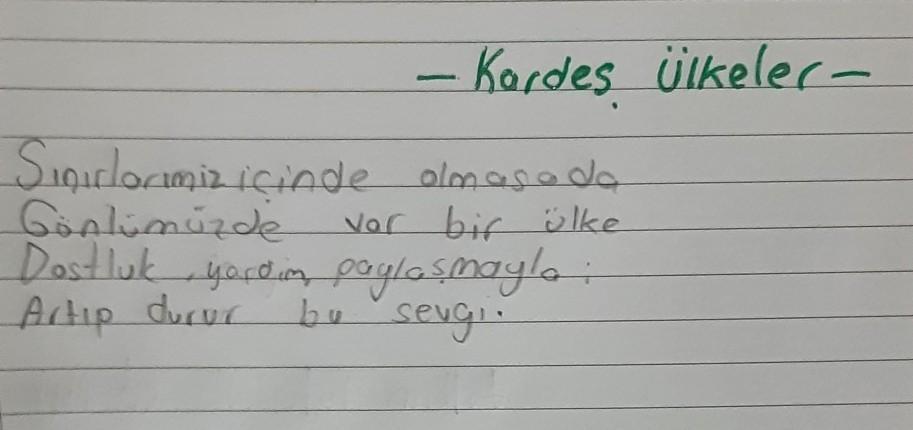 - Kardeş Ülkeler -
Sınırlarımız içinde olmasada
Gönlümüzde var bir ülke
Dostluk, yardım, paylaşmayla;
Artıp durur bu sevgi.